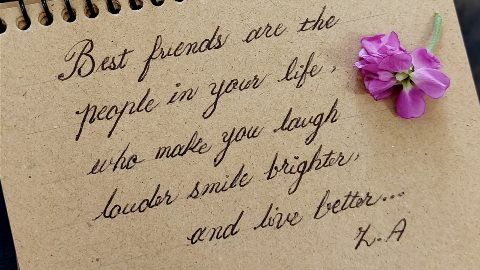 Best friends are the
people in your life,
who make you laugh
louder smile brighter,
and live better...
Z.A